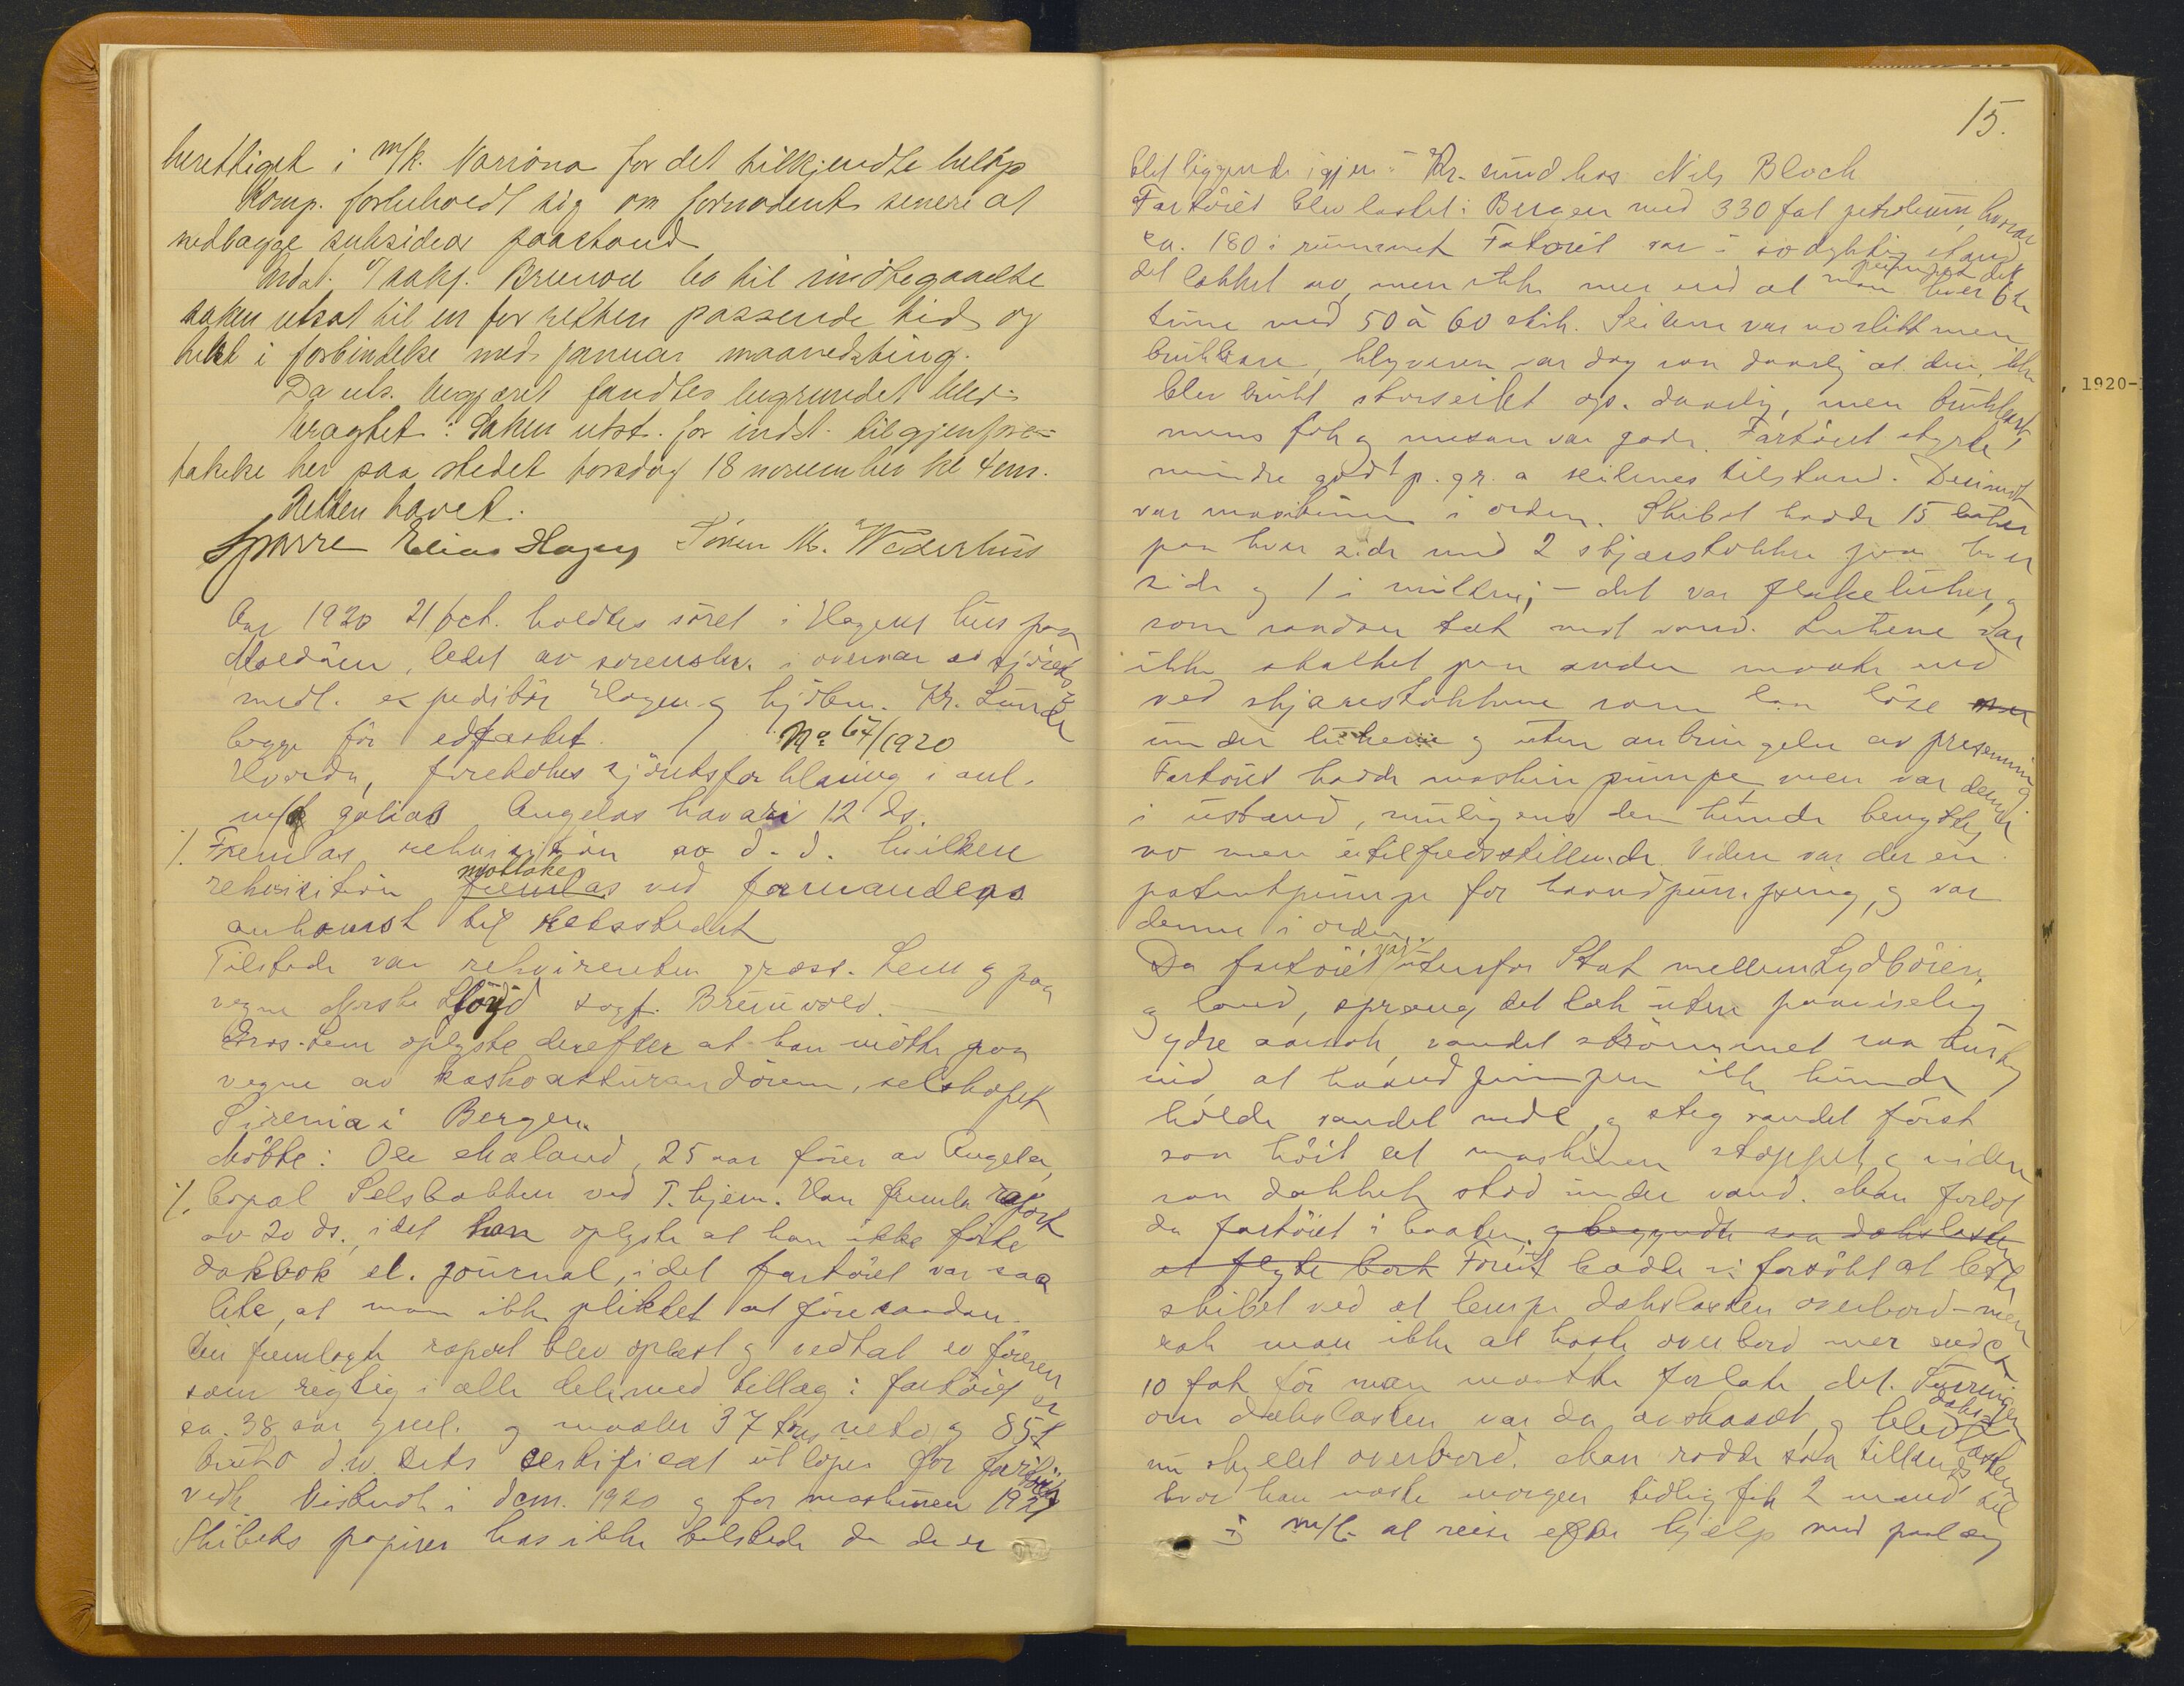 berettiget i m/k. Varriona for det tilkjendte beløp
Komp. forbeholdt sig om fornødent senere at
nedlægge subsidiær paastand
Indst. v/ sakf. Brunvoll bes til imøtegaaelse
saken utsat til en for retten passende tid og
helst i forbindelse med januar maanedsting.
Da uts. begjæret fandtes begrundet blev
bragtet: Saken utst. for indst. tilgjenfore-
takelse her paa stedet torsdag 18 november kl 4 em.
Retten hævet.
Sparre Elias Hagen Søren M. Wederhus
Aar 1920 21 oct. holdtes søret i Hagens hus paa
Moldøen, ledet av sorenskr. i overvær av sjørets
medl. expeditør Hagen og kjøbm. Kr. Lunde
begge før edfæstet. No 67/1920
Hvorda, foretokes sjøretsforklaring i anl.
m/k galias Angelas havari 12 ds.
./. Fremlas rekvisition av d. d. hvilken
rekvisition fremlas mottokes ved formandens
ankomst til retsstedet
Tilstede var rekvirenten gross. Lem og paa
vegne Norske Lloyd sagf. Brunvold.
Gros. Lem oplyste derefter at han møtte paa
vegne av kaskoassurandøren, selskapet
Sirenia i Bergen.
Møtte: Ole Mæland, 25 aar fører av Angela,
./. bopæl Selsbakken ved T. hjem. Han fremla raport
av 20 ds., idet han oplyste at han ikke førte
dakbok el. journal, idet fartøiet var saa
lite, at man ikke pliktet at føre saadan.
Den fremlagte raport blev oplæst og vedtat av føreren
som rigtig i alle dele med tillæg: fartøiet er
ca. 38 aar gml. og maaler 37 tons netto og 85 t
brutto d.w. Dets certifikat utløper for fartøiets
vedk. Vistnok i dcm. 1920 og for maskinen 1921
Skibets papirer has ikke tilstede da de er
15.
blet liggende igjen i Kr. sund hos Nils Bloch
Fartøiet blev lastet i Bergen med 330 fat petroleum, hvorav
ca. 180 i rummet Fatøiet var i sødyktig stand
det lækket av, men ikke mer end at man pumpet det hver 6te
time med 50 à 60 slag. Seilene var noslitt men
brukbare, klyveren var dog saa daarlig at den ikke
blev brukt storseilet ogs. daarlig, men brukbart,
mens fok og mesan var gode. Fartøiet styrte
mindre godt p. gr. a seilenes tilstand. Derimot
var maskinen i orden. Skibet hadde 15 luker
paa hver side med 2 skjærstokker paa hver
side og 1 i midten; – det var flakeluker, og
som saadan tæt mot vand. Lukene var
ikke skalket paa anden maate end
ved skjærestokkene som laa løse
under lukene og uten anbringelse av presenning
Fartøiet hadde maskin pumpe, men var denne
i ustand, muligens den kunde benyttes
no men utilfredsstillende. Videre var der en
patentpumpe for haandpumpning, og var
denne i orden.
Da fartøiet var utenfor Stat mellem Lydbøien
og land, sprang det læk uten paaviselig
ydre aarsak, vandet strømmet saa hurtig
ind, at haandpumpen ikke kunde
holde vandet nede, og steg vandet først
saa høit at maskinen stoppet og siden
saa dækket stod under vand. Man forlot
da fartøiet i baaten, og begyndte saa dækslasten
at flyte bort Forut hadde vi forsøkt at lette
skibet ved at lempe dækslasten overbord – men
rak man ikke at kaste overbord mer end ca
10 fat før man maatte forlate det. Surringen
om dækslasten var da avskaaret, og blev dækslasten
nu skyllet overbord. Man rodde saa tillands
hvor han næste morgen tidlig fik 2 mand til
i m/k at reise efter hjælp med paalæg
, 1920-